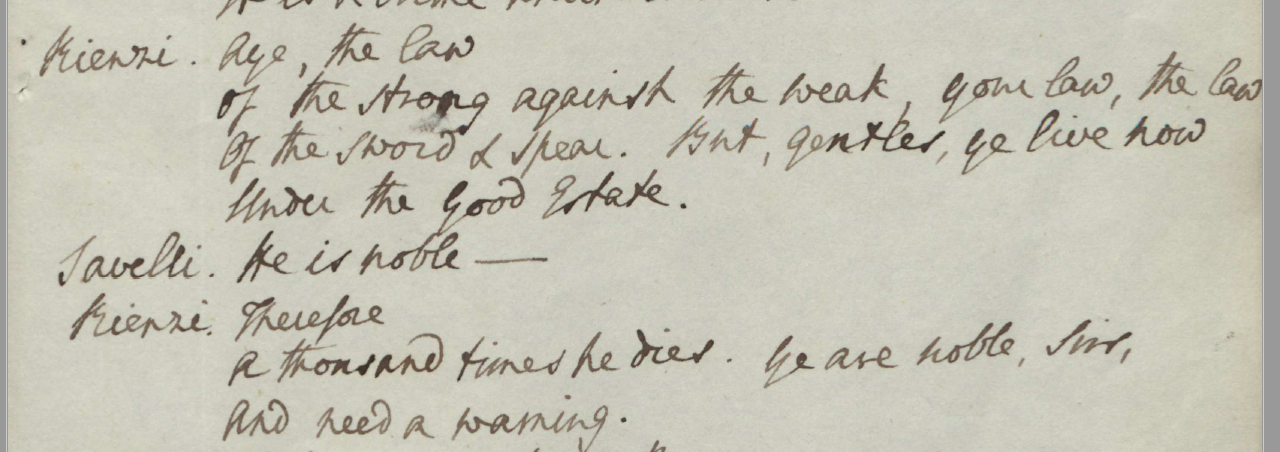 Rienzi. Aye, the law
Of the strong against the weak, your law, the law
Of the sword & spear. But, gentles, ye live now
Under the Good Estate.
Savelli. He is noble —
Rienzi. Therefore
A thousand times he dies. Ye are noble, Sirs,
And need a warning.